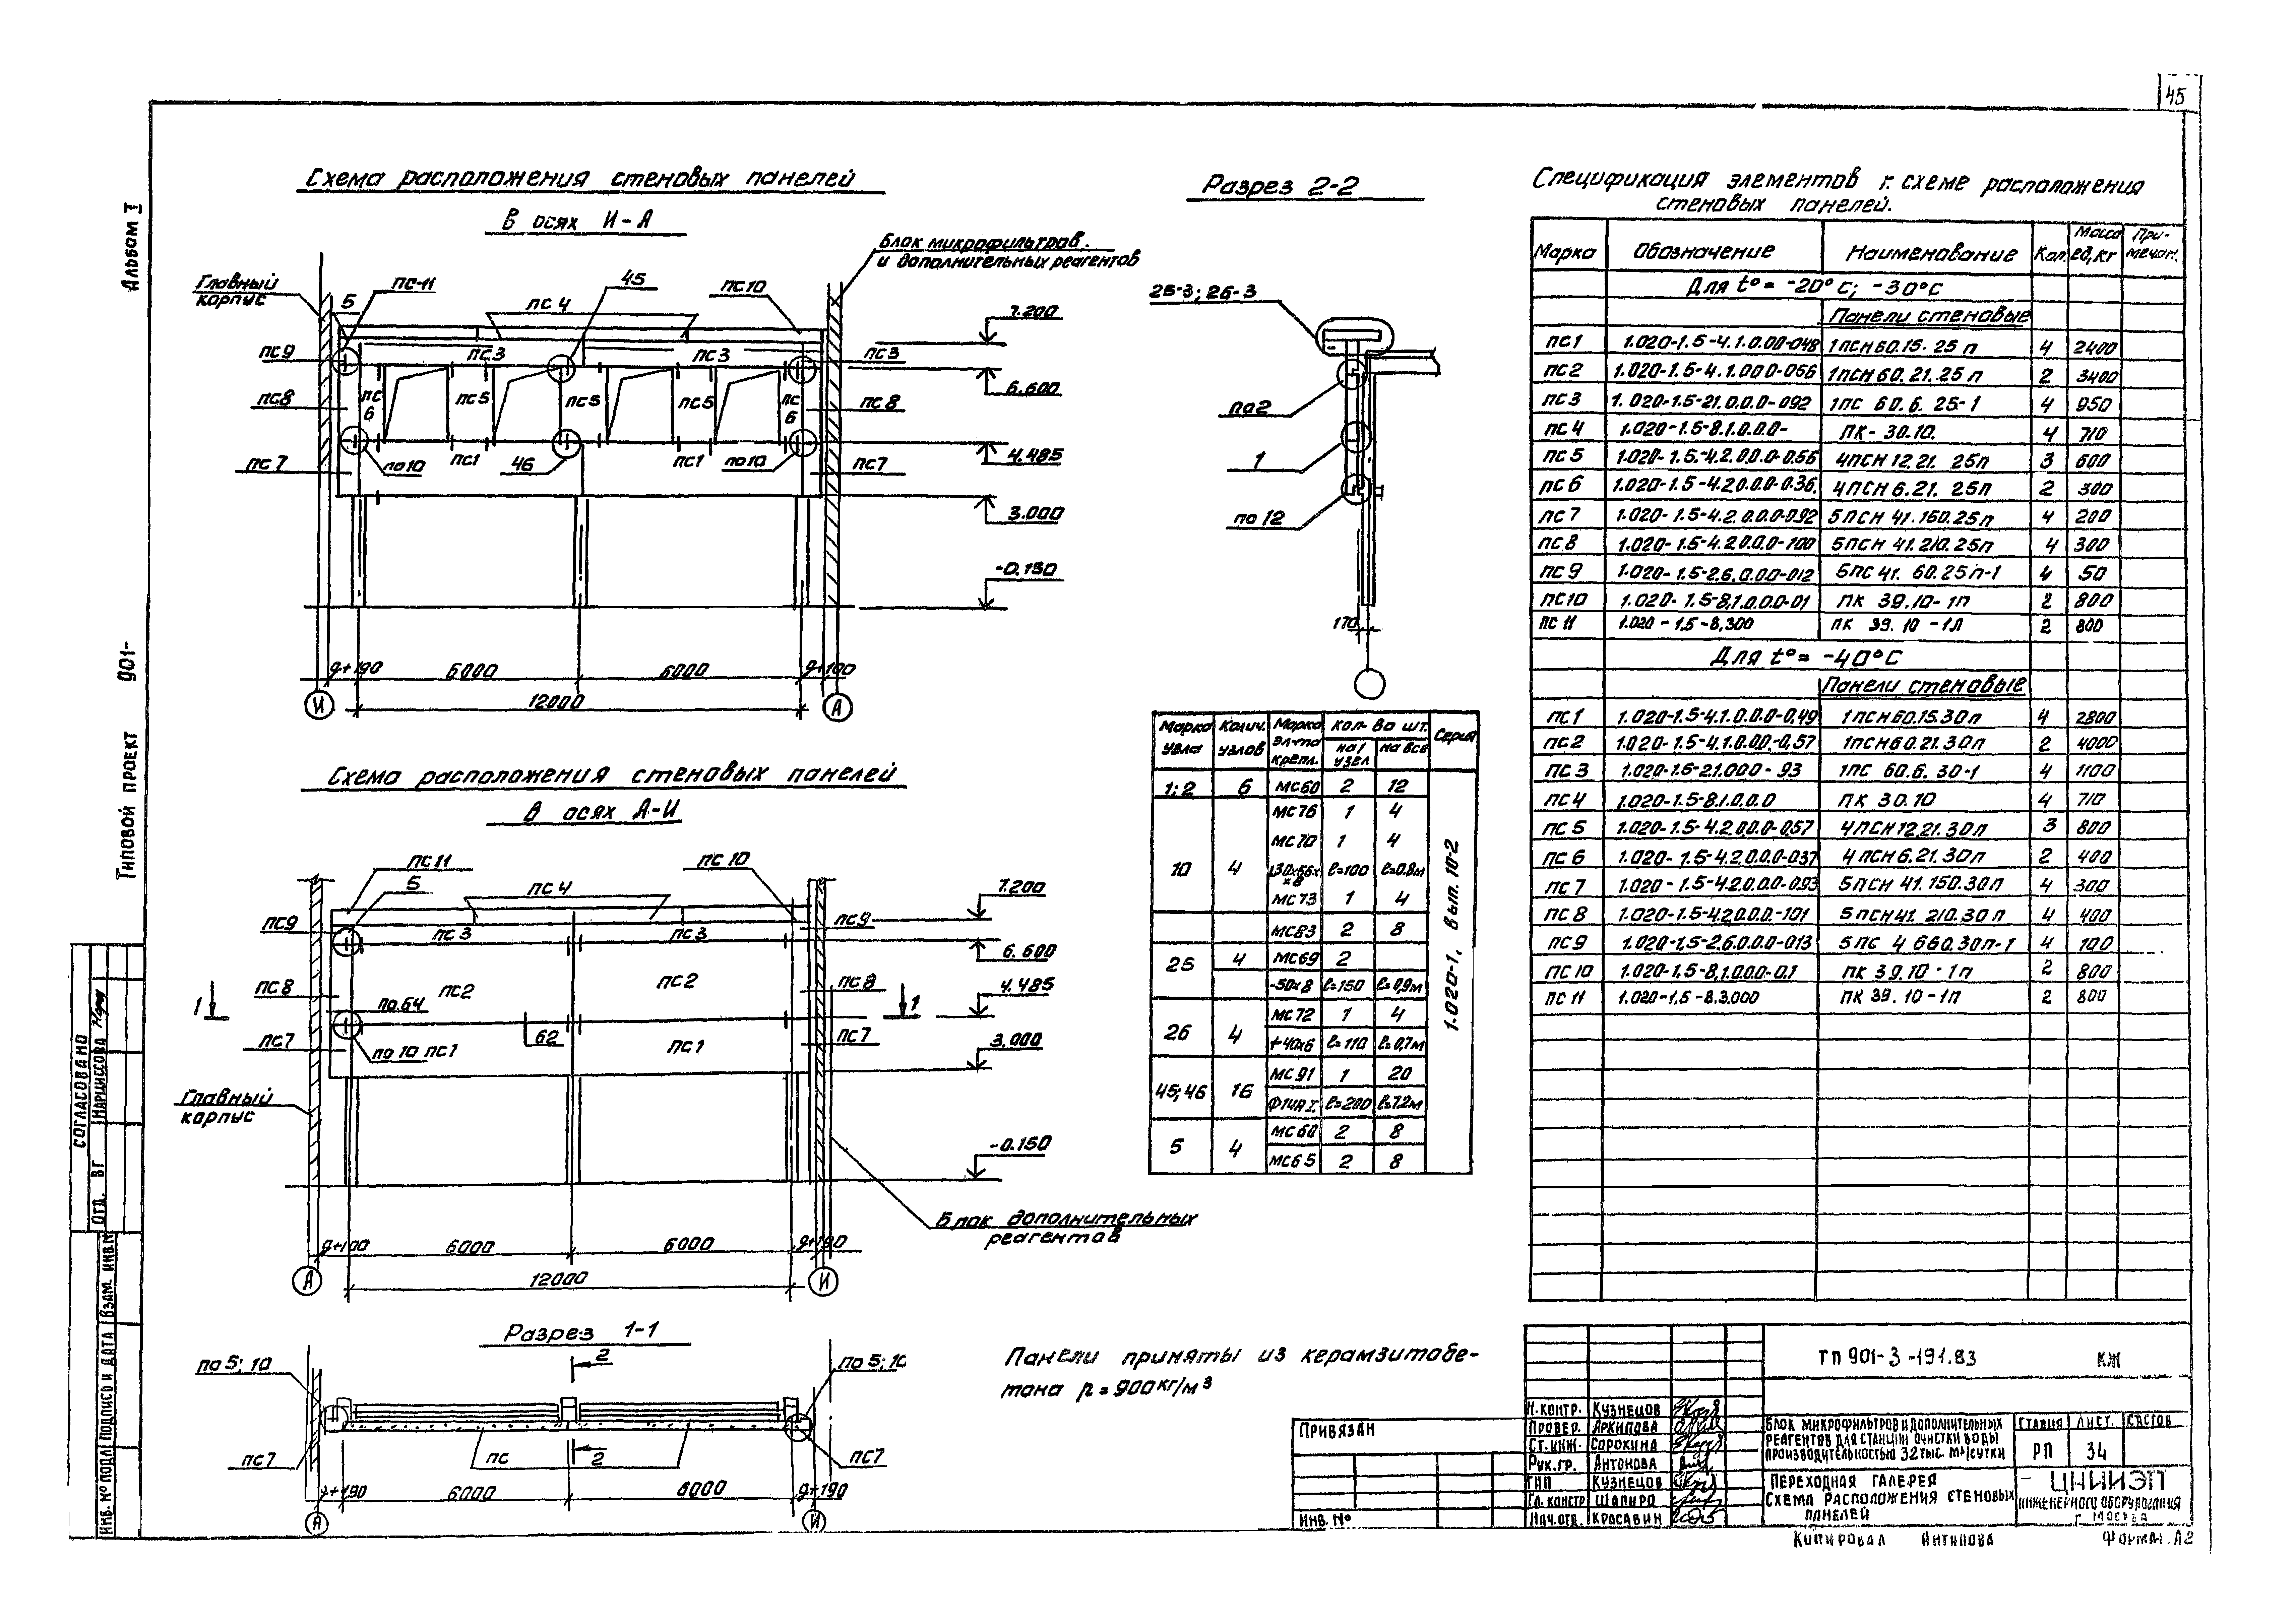 45
Альбом I
Типовой проект 901-
Схема расположения стеновых панелей
в осях И-А
Главный
корпус
Блок микрофильтров
и дополнительных реагентов
5
пс-11
пс 4
45
пс10
пс9
пс3
пс3
пс3
пс8
пс
6
пс5
пс5
пс5
пс
6
пс 8
пс 7
по10
пс1
46
пс1
по10
пс7
7.200
6.600
4.485
3.000
-0.150
6000
6000
12000
И
А
Схема расположения стеновых панелей
в осях А-И
пс11
5
пс 4
пс 10
пс9
пс 3
пс 3
пс9
пс8
пс2
пс2
пс8
по.64
1
1
пс7
по 10
пс1
62
пс1
пс7
7.200
6.600
4.485
3.000
-0.150
Главный
корпус
Блок дополнительных
реагентов
6000
6000
12000
А
И
Разрез 1-1
по 5; 10
2
по 5; 10
пс7
пс
2
пс7
6000
6000
А
И
Разрез 2-2
26-3; 26-3
по2
1
по 12
170
Марка узла | Колич. узлов | Марка эл-та крепл. | кол-во шт. на 1 узел | на все | Серия
1; 2 | 6 | мс60 | 2 | 12
10 | 4 | мс76 | 1 | 4
мс70 | 1 | 4
ℓ=100 | ℓ=0.8м
мс73 | 1 | 4
мс83 | 2 | 8
25 | 4 | мс69 | 2
-50х8 | ℓ=150 | ℓ=0,9м
26 | 4 | мс72 | 1 | 4
ℓ=110 | ℓ=0,7м
45; 46 | 16 | мс91 | 1 | 20
Ф14АI | ℓ=200 | ℓ=7.2м
5 | 4 | мс60 | 2 | 8
мс65 | 2 | 8
1.020-1, вып. 10-2
Панели приняты из керамзитобе-
тона р = 900 кг/м³
Спецификация элементов к схеме расположения
стеновых панелей.
Марка | Обозначение | Наименование | Кол. | Масса ед, кг | Примечан.
Для t° = -20°с; -30°с
Панели стеновые
пс1 | 1.020-1.5-4.1.0.00-048 | 1псн60.15.25п | 4 | 2400
пс2 | 1.020-1.5-4.1.0.00-056 | 1псн60.21.25п | 2 | 3400
пс3 | 1.020-1.5-21.0.0.0-092 | 1пс 60.6.25-1 | 4 | 950
пс4 | 1.020-1.5-8.1.0.0.0- | пк-30.10. | 4 | 710
пс5 | 1.020-1.5-4.2.0.0.0-0.56 | 4псн12.21.25п | 3 | 600
пс6 | 1.020-1.5-4.2.0.0.0-0.36. | 4псн6.21.25п | 2 | 300
пс7 | 1.020-1.5-4.2.0.0.0-0.92 | 5псн 41.150.25п | 4 | 200
пс8 | 1.020-1.5-4.2.0.0.0-100 | 5псн 41.210.25п | 4 | 300
пс9 | 1.020-1.5-2.6.0.0.0-012 | 5пс41.60.25п-1 | 4 | 50
пс10 | 1.020-1.5-8,1.0.0.0-01 | пк 39.10-1п | 2 | 800
пс 11 | 1.020-1,5-8.300 | пк 39.10-1л | 2 | 800
Для t°= -40°с
Панели стеновые
пс1 | 1.020-1.5-4.1.0.0.0-0.49 | 1псн60.15.30п | 4 | 2800
пс2 | 1.020-1.5-4.1.0.00.-0.57 | 1псн60.21.30п | 2 | 4000
пс3 | 1.020-1.5-21.000-93 | 1пс 60.6.30-1 | 4 | 1100
пс4 | 1.020-1.5-8.1.0.0.0 | пк 30.10 | 4 | 710
пс5 | 1.020-1.5-4.2.0.0.0-0.57 | 4псн12.21.30п | 3 | 800
пс6 | 1.020-1.5-4.2.0.0.0-037 | 4псн6.21.30п | 2 | 400
пс7 | 1.020-1.5-4.2.0.0.0-093 | 5псн 41.150.30п | 4 | 300
пс8 | 1.020-1.5-4.2.0.0.0.-101 | 5псн41.210.30п | 4 | 400
пс9 | 1.020-1,5-2.6.0.0.0-013 | 5пс 4 660.30п-1 | 4 | 100
пс10 | 1.020-1.5-8,1.0.0.0-0.1 | пк 39.10-1п | 2 | 800
пс11 | 1.020-1,5-8.3.000 | пк 39.10-1п | 2 | 800
тп 901-3-191.83 КЖ
Н.контр. Кузнецов
Провер. Архипова
Ст.инж. Сорокина
Рук.гр. Антонова
ГИП Кузнецов
Гл.констр Шапиро
Нач.отд. Красавин
Блок микрофильтров и дополнительных
реагентов для станции очистки воды
производительностью 32 тыс. м³/сутки
Стадия Лист. Листов
РП 34
Переходная галерея
Схема расположения стеновых
панелей
ЦНИИЭП
инженерного оборудования
г. Москва
Привязан
Инв. №
Копировал Антипова
Формат А2
Согласовано
Отд. ВГ Нарциссова
Инв. № подл
Подпись и дата
Взам. инв.№